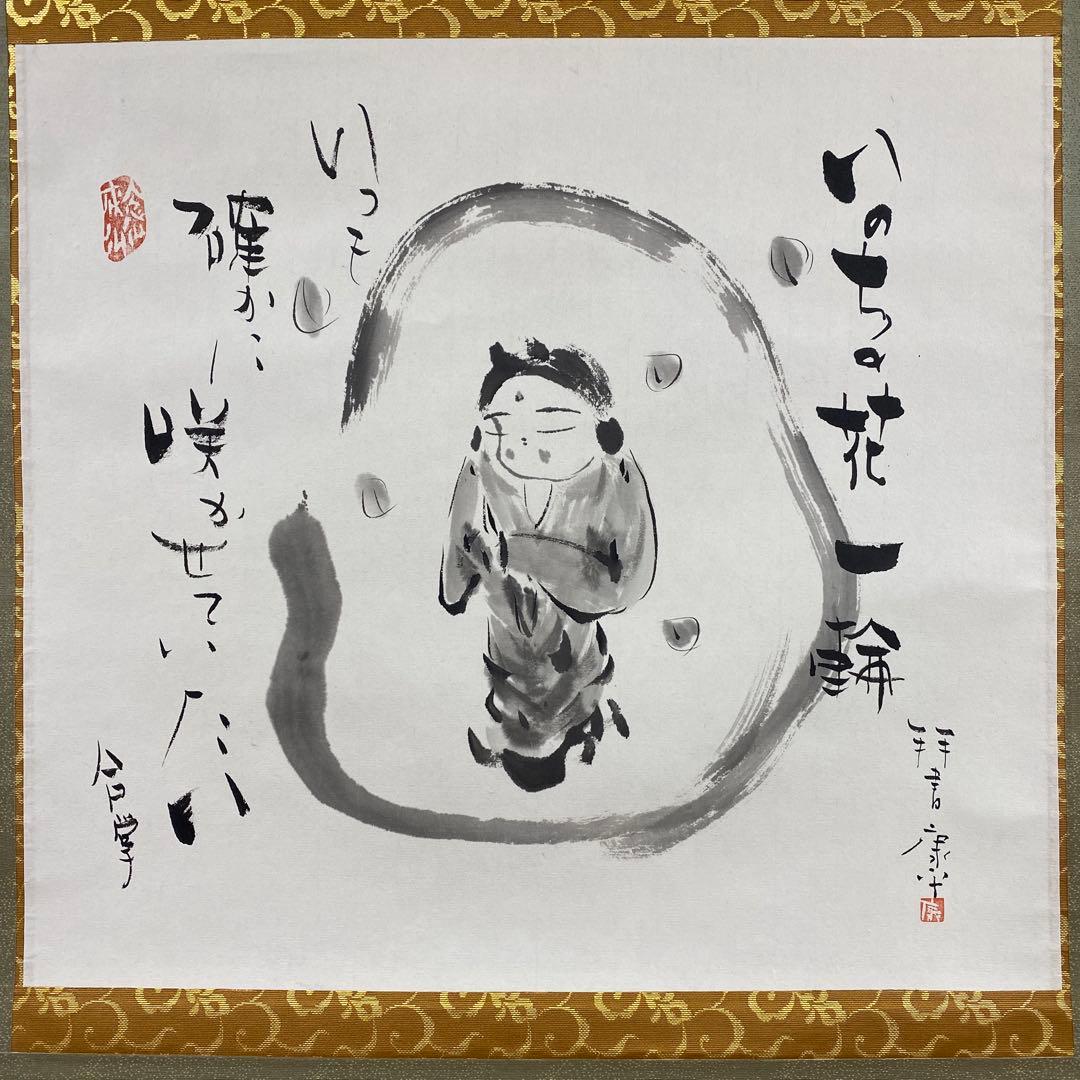 いのちの花一輪
拝書 康平
いつも
確かに
咲かせていたい
合掌